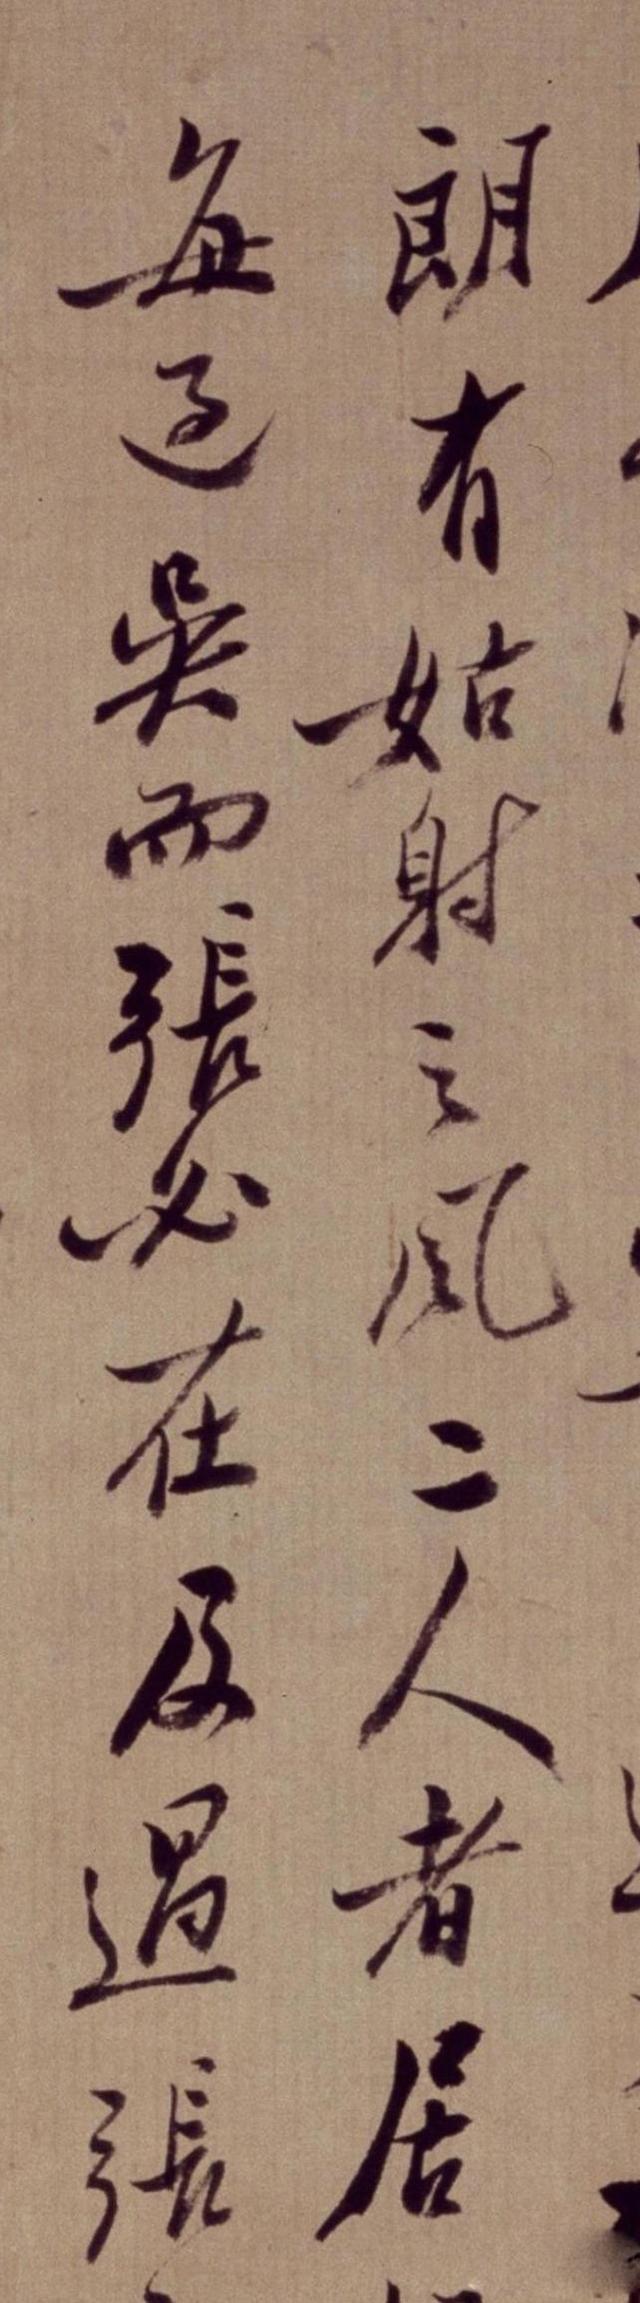 朗有姑射之風二人者居
每過吳而張必在及過張